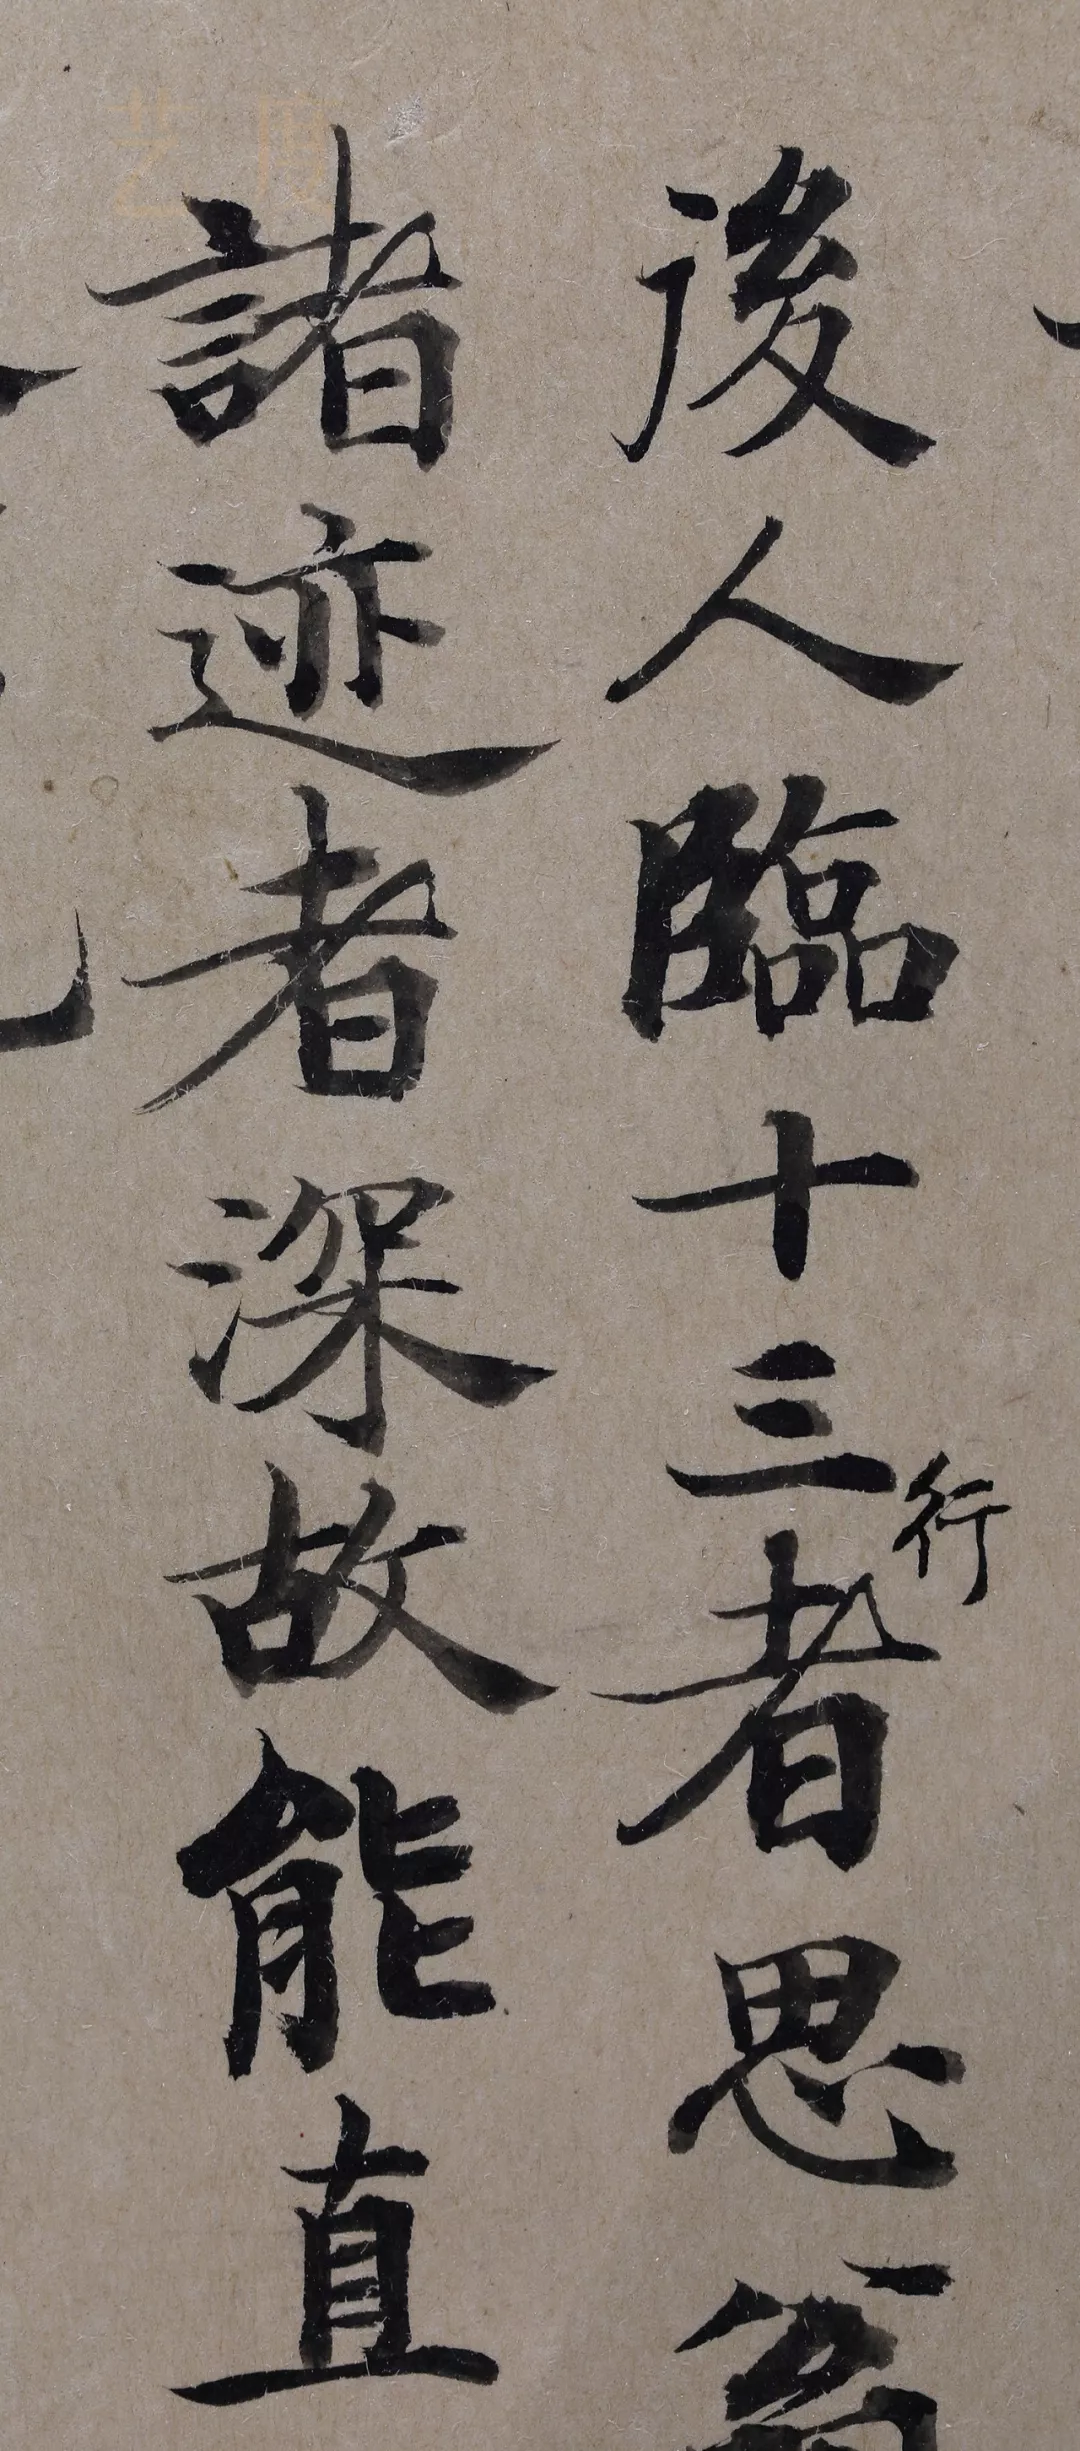 後人臨十三行者思翁
諸迹者深故能直
艺度